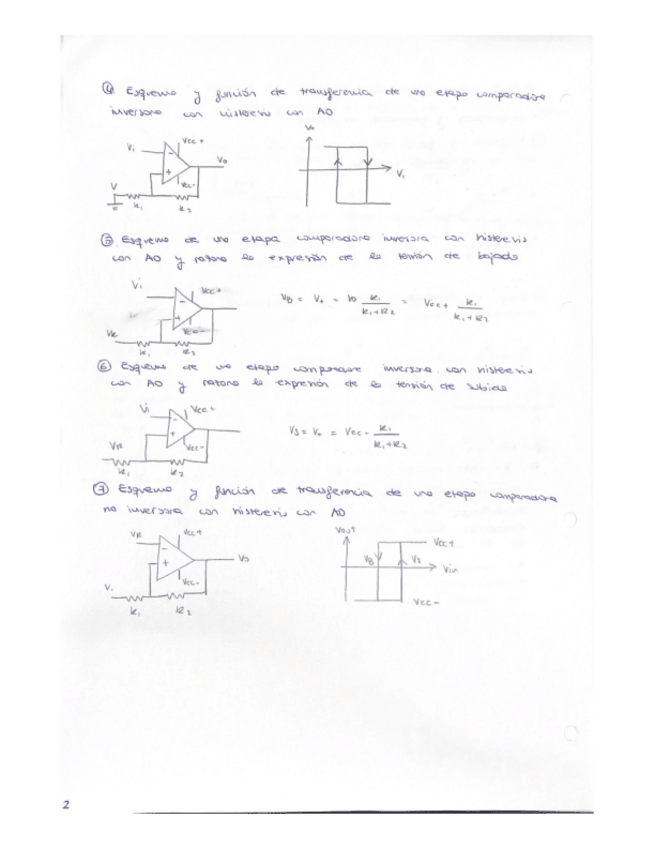 ④ Esquema y función de transferencia de una etapa comparadora
inversora con histeresis con AO
Vi
Vcc+
Vo
-
+
Vcc-
V
R1
R2
Vo
Vi
⑤ Esquema de una etapa comparadora inversora con histeresis
con AO y razona la expresión de la tensión de bajada
Vi
Vcc+
-
+
Vcc-
VR
R1
R2
VB = V+ = Vo R1/R1+R2 = Vcc+ R1/R1+R2
⑥ Esquema de una etapa comparadora inversora con histeresis
con AO y razona la expresión de la tensión de subida
Vi
Vcc+
-
+
Vcc-
VR
R1
R2
VS = V+ = Vcc- R1/R1+R2
⑦ Esquema y función de transferencia de una etapa comparadora
no inversora con histeresis con AO
VR
Vcc+
-
+
Vo
Vcc-
Vi
R1
R2
Vout
Vcc+
VB
VS
Vin
Vcc-
2